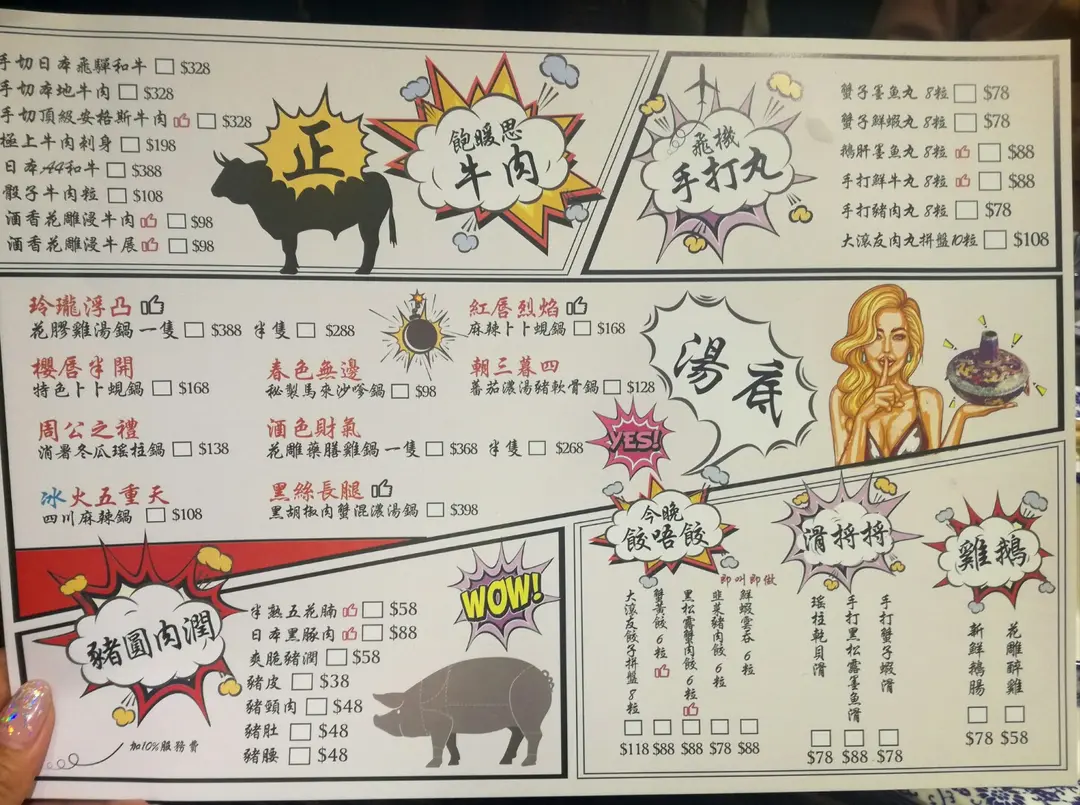 手切日本飛騨和牛 $328
手切本地牛肉 $328
手切頂級安格斯牛肉 $328
極上牛肉刺身 $198
日本A4和牛 $388
骰子牛肉粒 $108
酒香花雕浸牛肉 $98
酒香花雕浸牛展 $98
正
飽暖思
牛肉
飛機
手打丸
蟹子墨魚丸 8粒 $78
蟹子鮮蝦丸 8粒 $78
鵝肝墨魚丸 8粒 $88
手打鮮牛丸 8粒 $88
手打豬肉丸 8粒 $78
大滾友肉丸拼盤10粒 $108
玲瓏浮凸
花膠雞湯鍋 一隻 $388 半隻 $288
紅唇烈焰
麻辣卜卜蜆鍋 $168
櫻唇半開
特色卜卜蜆鍋 $168
春色無邊
秘製馬來沙嗲鍋 $98
朝三暮四
蕃茄濃湯豬軟骨鍋 $128
周公之禮
消暑冬瓜瑤柱鍋 $138
酒色財氣
花雕藥膳雞鍋 一隻 $368 半隻 $268
冰火五重天
四川麻辣鍋 $108
黑絲長腿
黑胡椒肉蟹混濃湯鍋 $398
湯底
YES!
豬圓肉潤
加10%服務費
半熟五花腩 $58
日本黑豚肉 $88
爽脆豬潤 $58
豬皮 $38
豬頸肉 $48
豬肚 $48
豬腰 $48
WOW!
今晚
餃唔餃
即叫即做
大滾友餃子拼盤 8粒 $118
蟹黃餃 6粒 $88
黑松露蟹肉餃 6粒 $88
韮菜豬肉餃 6粒 $78
鮮蝦雲吞 6粒 $88
滑捋捋
瑤柱乾貝滑 $78
手打黑松露墨魚滑 $88
手打蟹子蝦滑 $78
雞鵝
新鮮鵝腸 $78
花雕醉雞 $58